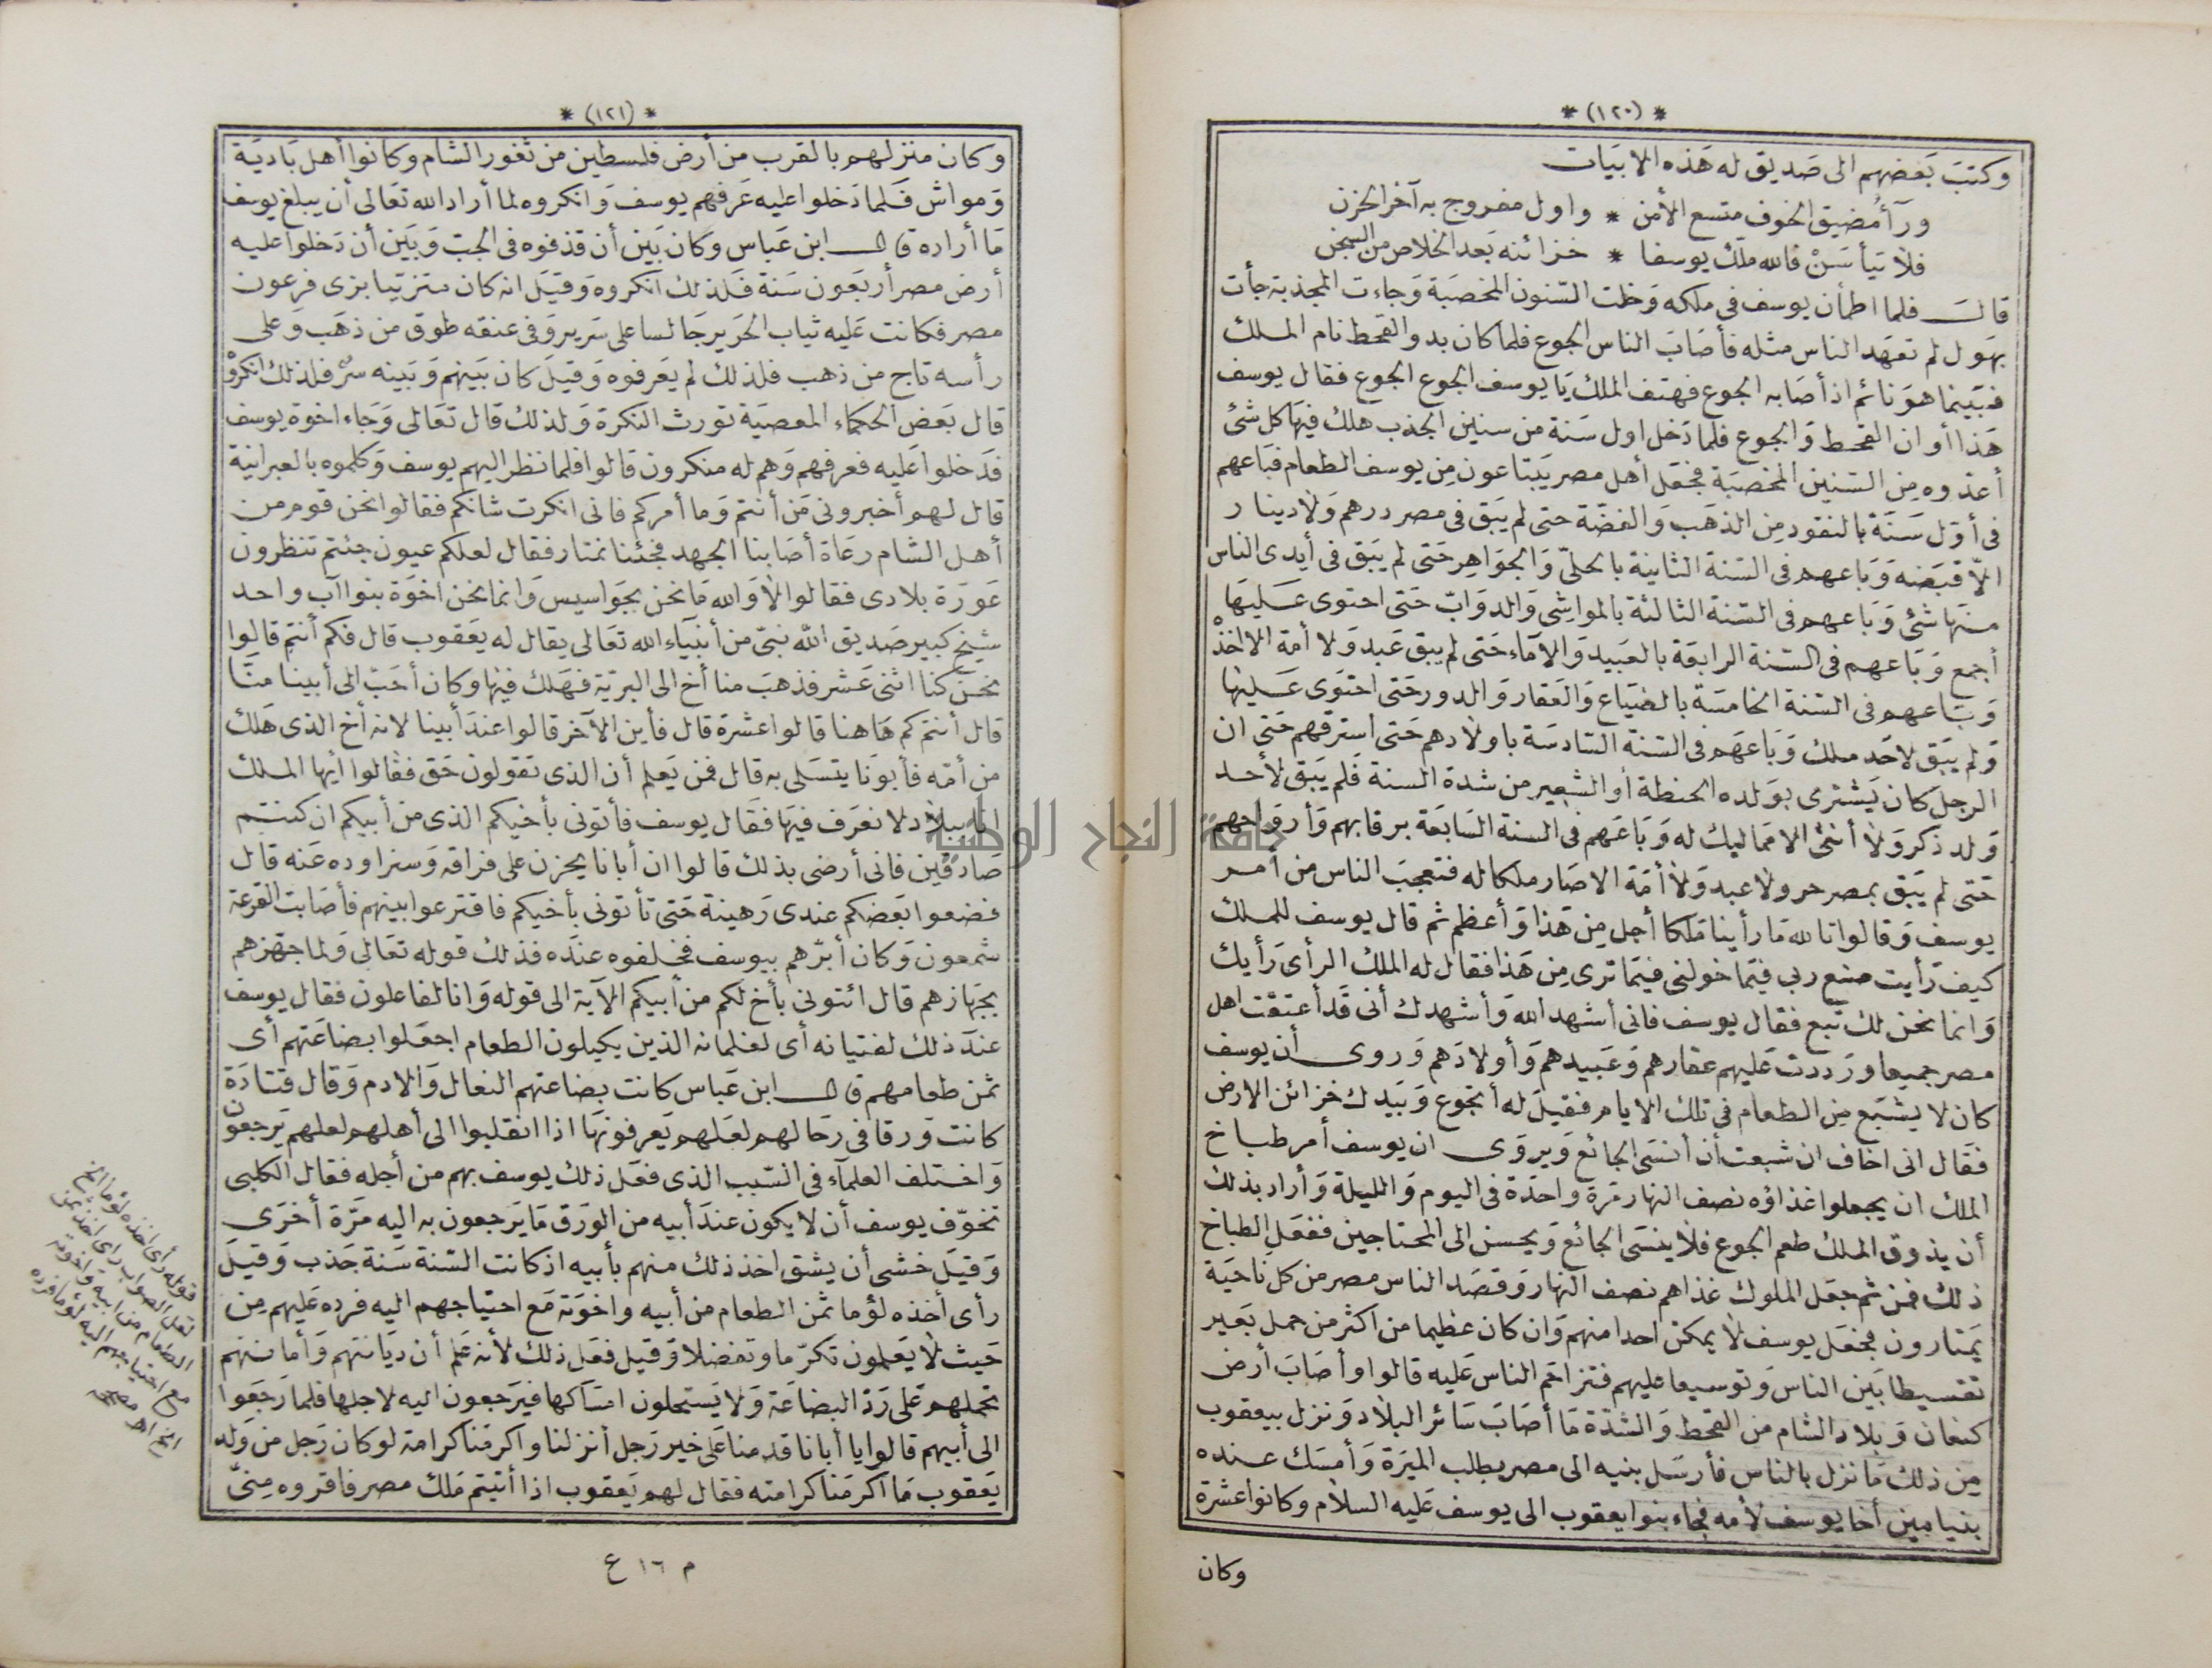 * (١٢٠) *
وكتب بعضهم الى صديق له هذه الابيات
ورآء مضيق الخوف متسع الأمن * واول مفروج به آخر الحزن
فلا تيأسن فالله ملك يوسفا * خزائنه بعد الخلاص من السجن
قال فلما اطمأن يوسف في ملكه وخلت السنون المخصبة وجاءت المجدبة جأت
بهول لم تعهد الناس مثله فأصاب الناس الجوع فلما كان بدو القحط نام الملك
فبينما هو نائم اذ أصابه الجوع فهتف الملك يا يوسف الجوع الجوع فقال يوسف
هذا أوان القحط والجوع فلما دخل اول سنة من سنين الجدب هلك فيها كل شئ
أعدوه من السنين المخصبة فجعل أهل مصر يبتاعون من يوسف الطعام فباعهم
في أول سنة بالنقود من الذهب والفضة حتى لم يبق في مصر درهم ولا دينار
الا قبضه وباعهم في السنة الثانية بالحلي والجواهر حتى لم يبق في أيدى الناس
منها شئ وباعهم في السنة الثالثة بالمواشى والدواب حتى احتوى عليها
أجمع وباعهم في السنة الرابعة بالعبيد والآماء حتى لم يبق عبد ولا أمة الا اخذ
وباعهم في السنة الخامسة بالضياع والعقار والدور حتى احتوى عليها
ولم يبق لاحد ملك وباعهم في السنة السادسة باولادهم حتى استرقهم حتى ان
الرجل كان يشترى بولده الحنطة أو الشعير من شدة السنة فلم يبق لأحد
ولد ذكر ولا أنثى الا مماليك له وباعهم في السنة السابعة برقابهم وأرواحهم
حتى لم يبق بمصر حر ولا عبد ولا أمة الا صار ملكا له فتعجب الناس من أمر
يوسف وقالوا تالله ما رأينا ملكا أجل من هذا وأعظم ثم قال يوسف للملك
كيف رأيت صنع ربي فيما خولني فيما ترى من هذا فقال له الملك الرأى رأيك
وانما نحن لك تبع فقال يوسف فانى أشهد الله وأشهدك أنى قد أعتقت اهل
مصر جميعا ورددت عليهم عقارهم وعبيدهم وأولادهم وروى أن يوسف
كان لا يشبع من الطعام في تلك الايام فقيل له أتجوع وبيدك خزائن الارض
فقال انى اخاف ان شبعت أن أنسى الجائع ويروى ان يوسف أمر طباخ
الملك ان يجعلوا غذاؤه نصف النهار مرة واحدة في اليوم والليلة وأراد بذلك
أن يذوق الملك طعم الجوع فلا ينسى الجائع ويحسن الى المحتاجين ففعل الطباخ
ذلك فمن ثم جعل الملوك غذاهم نصف النهار وقصد الناس مصر من كل ناحية
يمتارون فجعل يوسف لا يمكن احدا منهم وان كان عظيما من اكثر من حمل بعير
تقسيطا بين الناس وتوسيعا عليهم فتزاحم الناس عليه قالوا وأصاب أرض
كنعان وبلاد الشام من القحط والشدة ما أصاب سائر البلاد ونزل بيعقوب
من ذلك ما نزل بالناس فأرسل بنيه الى مصر يطلب الميرة وأمسك عنده
بنيامين أخا يوسف لأمه فجاء بنوا يعقوب الى يوسف عليه السلام وكانوا عشرة
وكان
* (١٢١) *
وكان منزلهم بالقرب من أرض فلسطين من ثغور الشام وكانوا أهل بادية
ومواش فلما دخلوا عليه عرفهم يوسف وانكروه لما أراد الله تعالى أن يبلغ يوسف
ما أراده قال ابن عباس وكان بين أن قذفوه في الجب وبين أن دخلوا عليه
أرض مصر أربعون سنة فلذلك انكروه وقيل انه كان متزييا بزى فرعون
مصر فكانت عليه ثياب الحرير جالسا على سرير وفي عنقه طوق من ذهب وعلى
رأسه تاج من ذهب فلذلك لم يعرفوه وقيل كان بينهم وبينه ستر فلذلك انكروه
قال بعض الحكماء المعصية تورث النكرة ولذلك قال تعالى وجاء اخوة يوسف
فدخلوا عليه فعرفهم وهم له منكرون قالوا فلما نظر اليهم يوسف وكلموه بالعبرانية
قال لهم أخبرونى من أنتم وما أمركم فانى انكرت شانكم فقالوا نحن قوم من
أهل الشام رعاة أصابنا الجهد فجئنا نمتار فقال لعلكم عيون جئتم تنظرون
عورة بلادى فقالوا لا والله ما نحن بجواسيس وانما نحن اخوة بنوا آب واحد
شيخ كبير صديق الله نبى من أنبياء الله تعالى يقال له يعقوب قال فكم أنتم قالوا
نحن كنا اثنى عشر فذهب منا أخ الى البرية فهلك فيها وكان أحب الى أبينا منا
قال أنتم كم هاهنا قالوا عشرة قال فأين الآخر قالوا عند أبينا لانه أخ الذى هلك
من أمه فأبونا يتسلى به قال فمن يعلم أن الذى تقولون حق فقالوا ايها الملك
انا ببلاد لا نعرف فيها فقال يوسف فأتونى بأخيكم الذى من أبيكم ان كنتم
صادقين فانى أرضى بذلك قالوا ان أبانا يحزن على فراقه وسنراوده عنه قال
فضعوا بعضكم عندى رهينة حتى تأتونى بأخيكم فاقترعوا بينهم فأصابت القرعة
شمعون وكان أبرهم بيوسف فخلفوه عنده فذلك قوله تعالى ولما جهزهم
بجهازهم قال ائتونى بأخ لكم من أبيكم الآية الى قوله وانا لفاعلون فقال يوسف
عند ذلك لفتيانه أى لغلمانه الذين يكيلون الطعام اجعلوا بضاعتهم أى
ثمن طعامهم قال ابن عباس كانت بضاعتهم النعال والادم وقال قتادة
كانت ورقا في رحالهم لعلهم يعرفونها اذا انقلبوا الى أهلهم لعلهم يرجعون
واختلف العلماء في السبب الذى فعل ذلك يوسف بهم من أجله فقال الكلبى
تخوف يوسف أن لا يكون عند أبيه من الورق ما يرجعون به اليه مرة أخرى
وقيل خشى أن يشق اخذ ذلك منهم بأبيه اذ كانت السنة سنة جدب وقيل
رأى أخذه لؤما ثمن الطعام من أبيه واخوته مع احتياجهم اليه فرده عليهم من
حيث لا يعلمون تكرما وتفضلا وقيل فعل ذلك لأنه علم أن ديانتهم وأمانتهم
تحملهم على رد البضاعة ولا يستحلون امساكها فيرجعون اليه لاجلها فلما رجعوا
الى أبيهم قالوا يا أبانا قدمنا على خير رجل أنزلنا واكرمنا كرامة لو كان رجل من ولد
يعقوب ما اكرمنا كرامته فقال لهم يعقوب اذا أتيتم ملك مصر فاقروه منى
قوله رأى اخذه لؤما الخ
لعل الصواب رأى اخذ ثمن
الطعام من ابيه واخوته
مع احتياجهم اليه لؤما فرده
الخ اهـ مصححه
م ١٦ ع
جامعة النجاح الوطنية